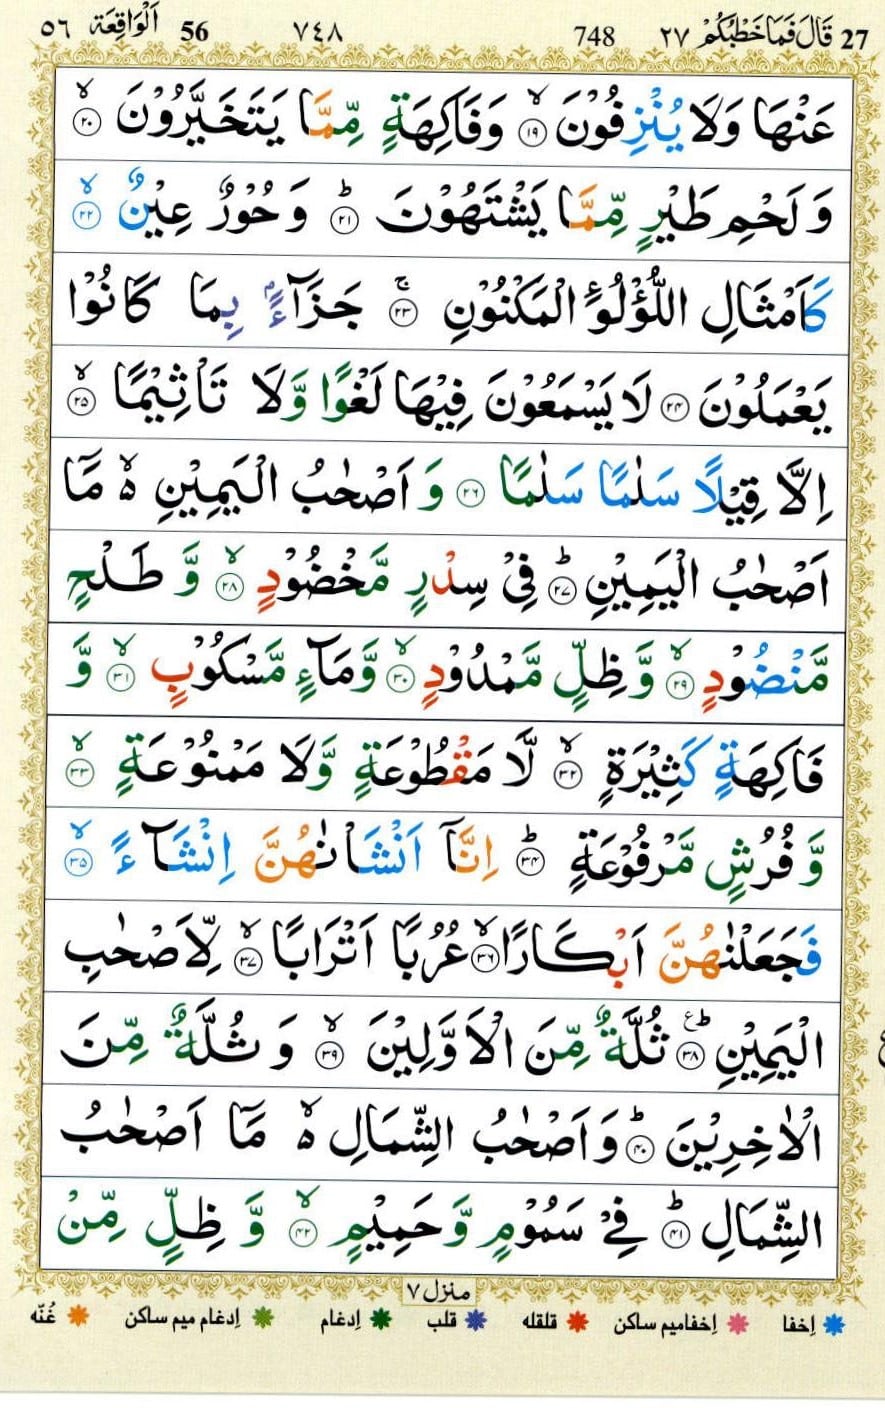 27 قَالَ فَمَا خَطْبُكُمْ ٢٧ 748 ٧٤٨ 56 اَلْوَاقِعَة ٥٦
عَنْهَا وَلَا يُنْزِفُوْنَ ۙ‏﴿۱۹﴾ وَفَاكِهَةٍ مِّمَّا يَتَخَيَّرُوْنَ ۙ‏﴿۲۰﴾
وَلَحْمِ طَيْرٍ مِّمَّا يَشْتَهُوْنَ ؕ‏﴿۲۱﴾ وَحُوْرٌ عِيْنٌ ۙ‏﴿۲۲﴾
كَاَمْثَالِ اللُّؤْلُوٴِ الْمَكْنُوْنِ ۚ‏﴿۲۳﴾ جَزَآءًۢ بِمَا كَانُوْا
يَعْمَلُوْنَ ﴿۲۴﴾ لَا يَسْمَعُوْنَ فِيْهَا لَغْوًا وَّلَا تَاْثِيْمًا ۙ‏﴿۲۵﴾
اِلَّا قِيْلًا سَلٰمًا سَلٰمًا ﴿۲۶﴾ وَاَصْحٰبُ الْيَمِيْنِ ۙ۬ مَاۤ
اَصْحٰبُ الْيَمِيْنِ ؕ‏﴿۲۷﴾ فِىْ سِدْرٍ مَّخْضُوْدٍ ۙ‏﴿۲۸﴾ وَّطَلْحٍ
مَّنْضُوْدٍ ۙ‏﴿۲۹﴾ وَّظِلٍّ مَّمْدُوْدٍ ۙ‏﴿۳۰﴾ وَّمَآءٍ مَّسْكُوْبٍ ۙ‏﴿۳۱﴾ وَّ
فَاكِهَةٍ كَثِيْرَةٍ ۙ‏﴿۳۲﴾ لَّا مَقْطُوْعَةٍ وَّلَا مَمْنُوْعَةٍ ۙ‏﴿۳۳﴾
وَّفُرُشٍ مَّرْفُوْعَةٍ ؕ‏﴿۳۴﴾ اِنَّاۤ اَنْشَاْنٰهُنَّ اِنْشَآءً ۙ‏﴿۳۵﴾
فَجَعَلْنٰهُنَّ اَبْكَارًا ۙ‏﴿۳۶﴾ عُرُبًا اَتْرَابًا ۙ‏﴿۳۷﴾ لِّاَصْحٰبِ
الْيَمِيْنِ ؕ‏﴿۳۸﴾ ثُلَّةٌ مِّنَ الْاَوَّلِيْنَ ۙ‏﴿۳۹﴾ وَثُلَّةٌ مِّنَ
الْاٰخِرِيْنَ ؕ‏﴿۴۰﴾ وَاَصْحٰبُ الشِّمَالِ ۙ۬ مَاۤ اَصْحٰبُ
الشِّمَالِ ؕ‏﴿۴۱﴾ فِىْ سَمُوْمٍ وَّحَمِيْمٍ ۙ‏﴿۴۲﴾ وَّظِلٍّ مِّنْ
منزل ٧
إخفا إخفا ميم ساكن قلقله قلب إدغام إدغام ميم ساكن غُنّه